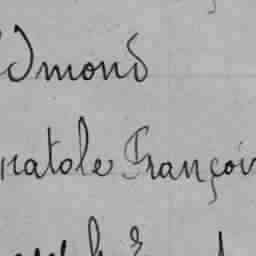 Edmond
Anatole François